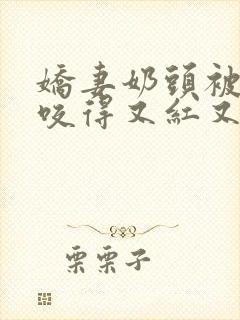 嬌妻奶頭被
咬得又紅又
栗栗子